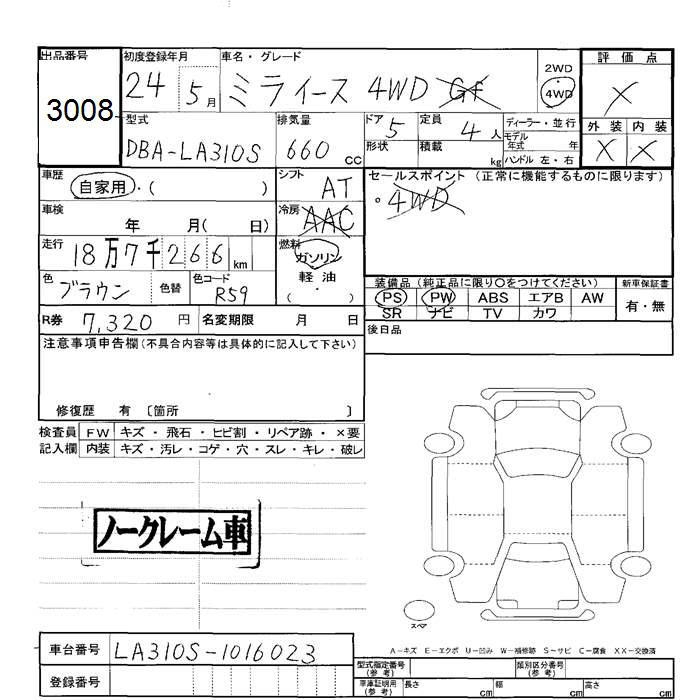 出品番号
3008
初度登録年月
24 5月
車名・グレード
ミライース 4WD
2WD
4WD
評価点
X
外装 内装
X X
型式
DBA-LA310S
排気量
660 cc
ドア 5
形状
定員 4人
積載 kg
ディーラー・並行
モデル
年式 年
ハンドル 左・右
車歴
自家用・( )
シフト
AT
セールスポイント (正常に機能するものに限ります)
・4WD
車検
年 月( 日)
冷房
AAC
走行
18万7千266km
燃料
ガソリン
軽油
( )
色
ブラウン
色替
色コード
R59
装備品(純正品に限り〇をつけてください)
PS PW ABS エアB AW
SR ナビ TV カワ
新車保証書
有・無
R券 7,320 円
名変期限 月 日
後日品
注意事項申告欄(不具合内容等は具体的に記入して下さい)
修復歴 有 〔箇所 〕
検査員 FW キズ・飛石・ヒビ割・リペア跡・×要
記入欄 内装 キズ・汚レ・コゲ・穴・スレ・キレ・破レ
ノークレーム車
スペア
A-キズ E-エクボ U-凹み W-補修跡 S-サビ C-腐食 XX-交換済
車台番号 LA310S-1016023
登録番号
型式指定番号
(参考)
類別区分番号
(参考)
車庫証明用
(参考)
長さ cm 幅 cm 高さ cm